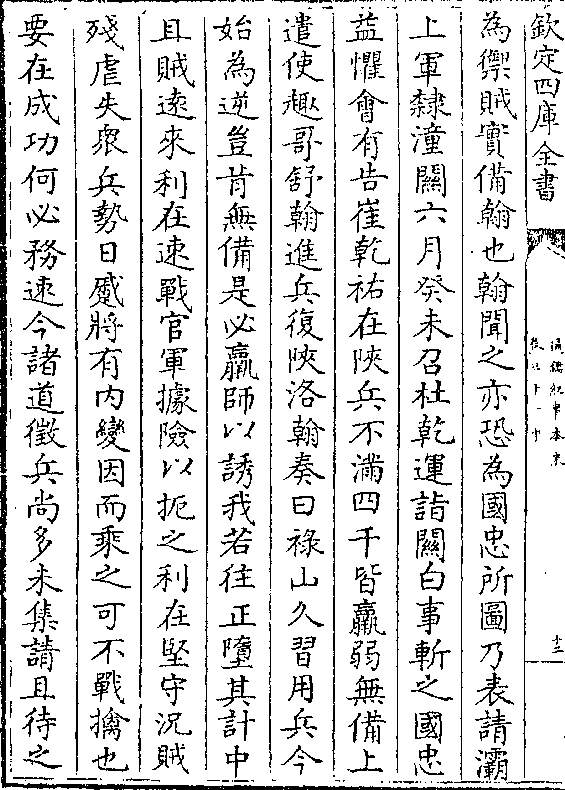 欽定四庫全書
通鑑紀事本末
卷三十一中
十三
為禦賊實備翰也翰聞之亦恐為國忠所圖乃表請灞
上軍隸潼關六月癸未召杜乾運詣關白事斬之國忠
益懼會有告崔乾祐在陜兵不滿四千皆羸弱無備上
遣使趣哥舒翰進兵復陜洛翰奏曰祿山久習用兵今
始為逆豈肯無備是必羸師以誘我若往正墮其計中
且賊遠來利在速戰官軍據險以扼之利在堅守況賊
殘虐失衆兵勢日蹙將有內變因而乘之可不戰擒也
要在成功何必務速今諸道徵兵尚多未集請且待之